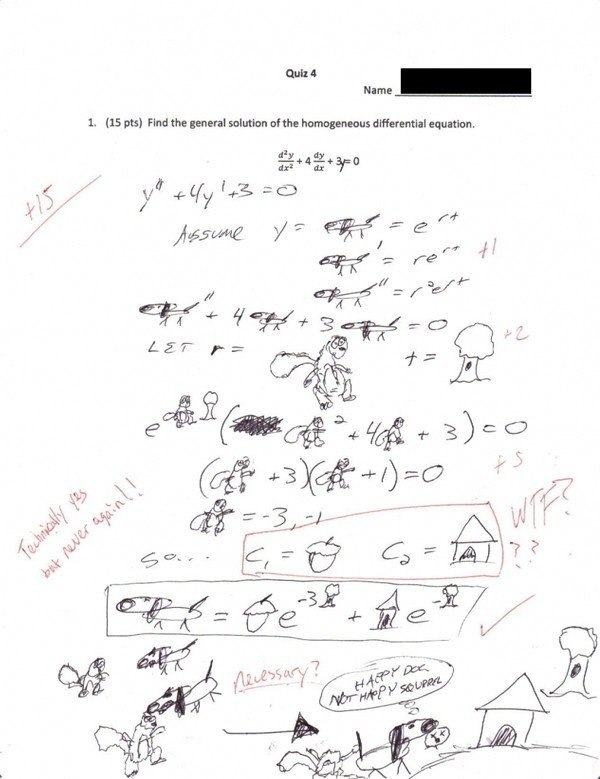 Quiz 4
Name
1. (15 pts) Find the general solution of the homogeneous differential equation.
d²y/dx² + 4 dy/dx + 3y = 0
+15
y'' + 4y' + 3 = 0
ASSUME y = = e^rt
' = re^rt +1
'' = r²e^rt
'' + 4 ' + 3 = 0
LET r = t = +2
e ( ² + 4 + 3) = 0
( + 3)( + 1) = 0 +5
= -3, -1
Technically yes
but never again!!
SO... C₁ = C₂ = WTF?
??
= e^-3 + e^-
necessary?
HAPPY DOG
NOT HAPPY SQUIRREL